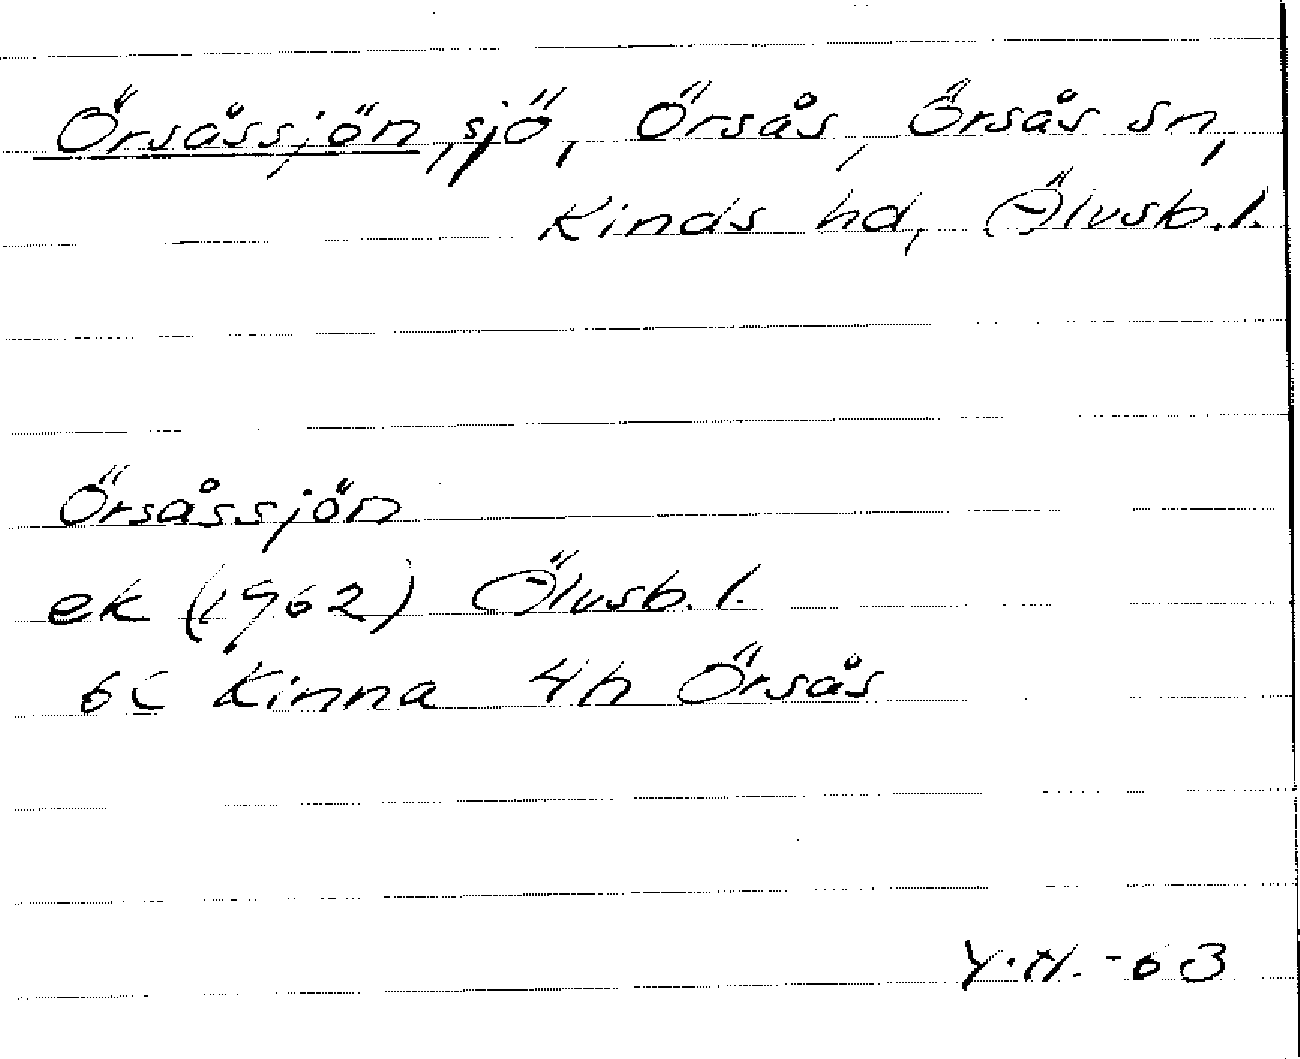 Örsåssjön, sjö, Örsås, Örsås sn,
Kinds hd, Älvsb. l.
Örsåssjön
ek (1962) Älvsb. l.
6C Kinna 4h Örsås
Y.H. -63